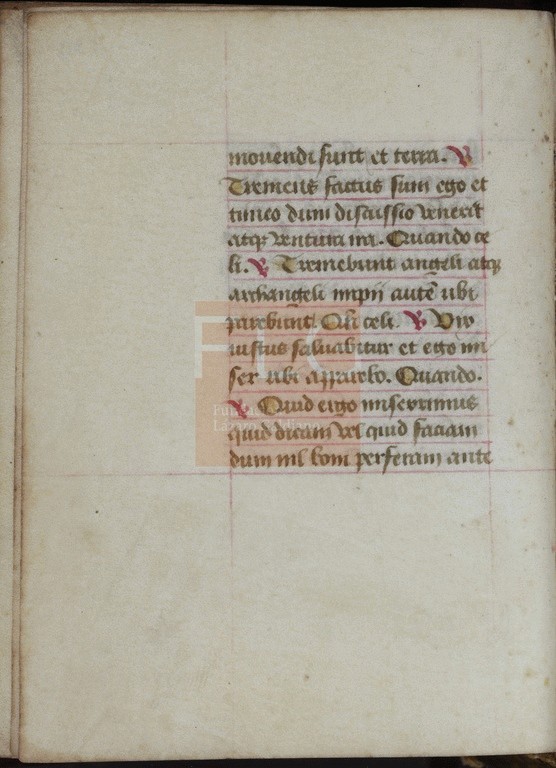 mouendi sunt et terra. V
Tremens factus sum ego et
timeo dum discussio venerit
atq; ventura ira. Quando ce
li. V Tremebunt angeli atq;
archangeli impii autē ubi
parebunt. Qñ celi. V Vix
iustus saluabitur et ego mi
ser ubi apparebo. Quando.
V Quid ergo miserrimus
quid dicam vel quid faciam
dum nil boni perferam ante
Lázaro Galdiano